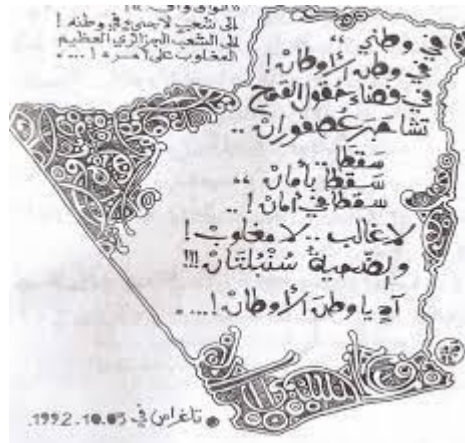 إلى شعب لاجىء في وطنه !
إلى الشعب الجزائري العظيم
المغلوب على أمره ! ....
في وطني ،،
في وطن الأوطان !
في فضاء حقول القمح
تشاجر عصفوران ..
سقطا
سقطا بأمان ،،
سقطا في أمان ! ..
لا غالب .. لا مغلوب !
والضحية سُنْبُلتان !!!
آه يا وطن الأوطان ! ....
تلغراس في 1992.10.03.